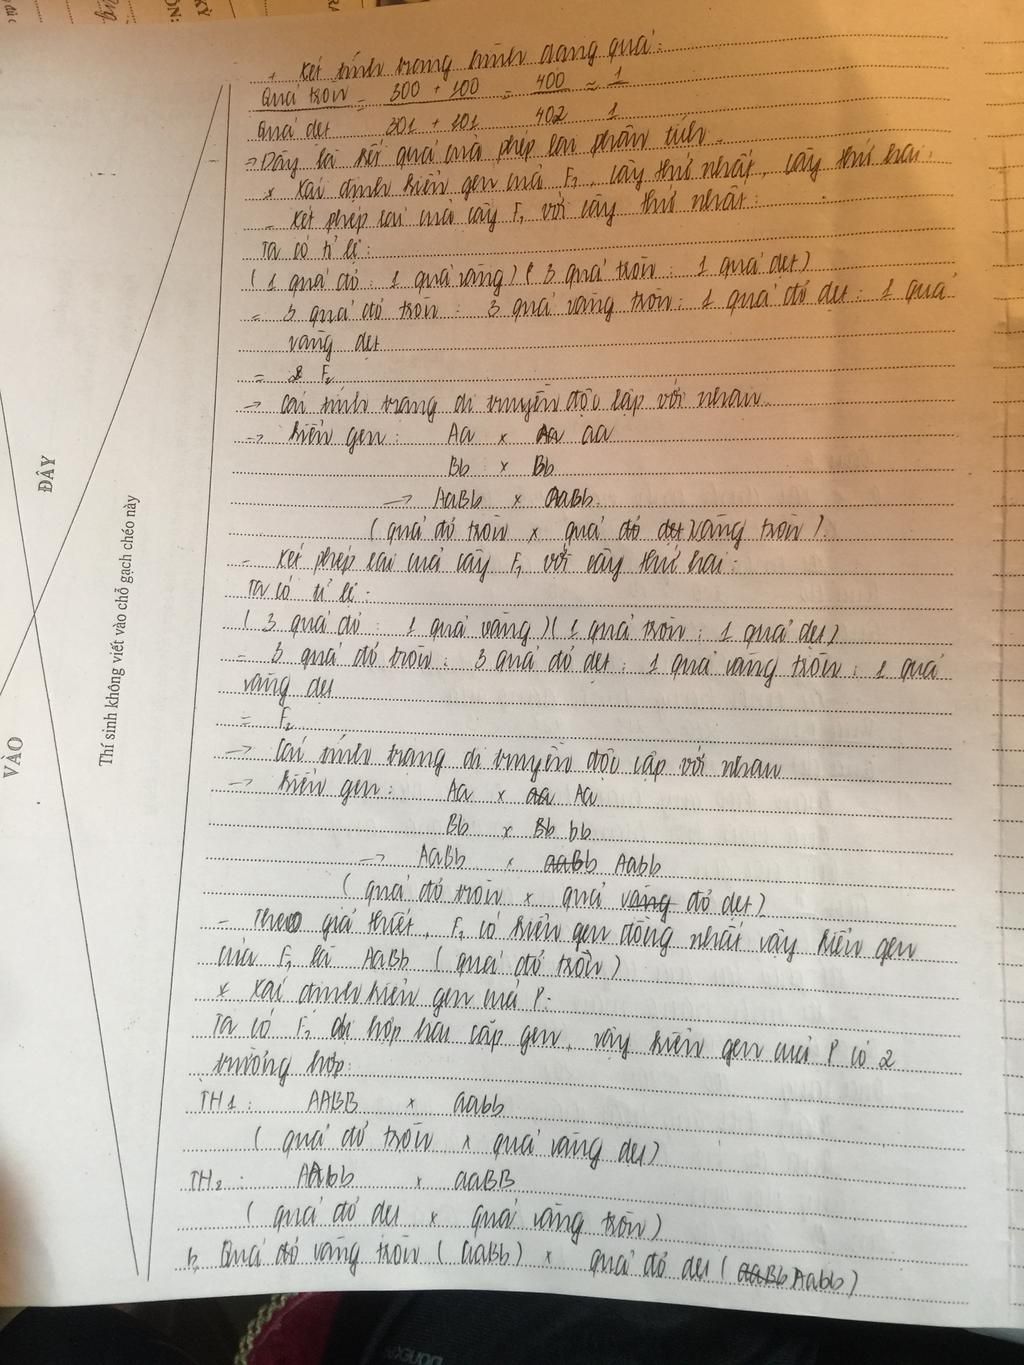 + Xét tính trạng hình dạng quả:
Quả tròn = 300 + 100 = 400 ≈ 1
Quả dẹt 301 + 101 402 1
→ Đây là kết quả của phép lai phân tích.
* Xác định kiểu gen của F₁, cây thứ nhất, cây thứ hai:
- Xét phép lai của cây F₁ với cây thứ nhất:
Ta có tỉ lệ:
(1 quả đỏ : 1 quả vàng)(3 quả tròn : 1 quả dẹt)
= 3 quả đỏ tròn : 3 quả vàng tròn : 1 quả đỏ dẹt : 1 quả
vàng dẹt
= F₂
→ Các tính trạng di truyền độc lập với nhau.
→ Kiểu gen: Aa x Aa aa
Bb x Bb
→ AaBb x aaBb.
(quả đỏ tròn x quả đỏ dẹt vàng tròn).
- Xét phép lai của cây F₁ với cây thứ hai:
Ta có tỉ lệ:
(3 quả đỏ : 1 quả vàng)(1 quả tròn : 1 quả dẹt)
= 3 quả đỏ tròn : 3 quả đỏ dẹt : 1 quả vàng tròn : 1 quả
vàng dẹt
= F₂
→ Các tính trạng di truyền độc lập với nhau
→ Kiểu gen: Aa x aa Aa
Bb x Bb bb
→ AaBb x aaBb Aabb
(quả đỏ tròn x quả vàng đỏ dẹt)
- Theo giả thiết, F₁ có kiểu gen đồng nhất vậy kiểu gen
của F₁ là AaBb (quả đỏ tròn)
* Xác định kiểu gen của P:
Ta có F₁ dị hợp hai cặp gen, vậy kiểu gen của P có 2
trường hợp:
TH1: AABB x aabb
(quả đỏ tròn x quả vàng dẹt)
TH₂: AAbb x aaBB
(quả đỏ dẹt x quả vàng tròn)
b, Quả đỏ vàng tròn (aaBb) x quả đỏ dẹt (aaBb Aabb)
VÀO
ĐÂY
Thí sinh không viết vào chỗ gạch chéo này